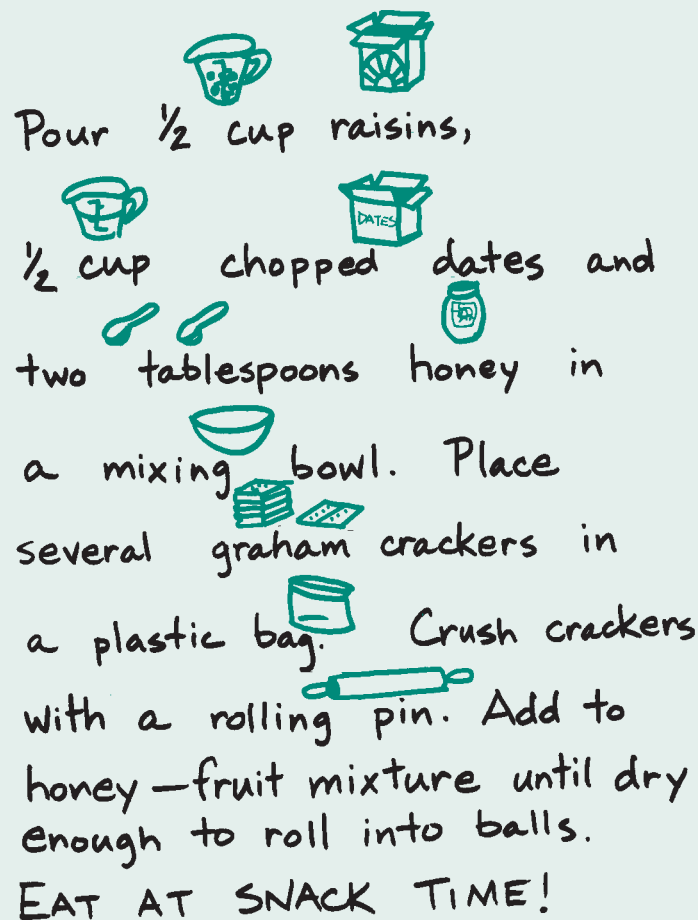 Pour ½ cup raisins,
DATES
½ cup chopped dates and
two tablespoons honey in
a mixing bowl. Place
several graham crackers in
a plastic bag. Crush crackers
with a rolling pin. Add to
honey—fruit mixture until dry
enough to roll into balls.
EAT AT SNACK TIME!